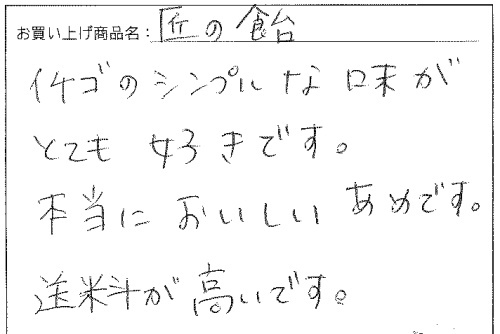 お買い上げ商品名：匠の飴
イチゴのシンプルな味が
とても好きです。
本当においしいあめです。
送料が高いです。